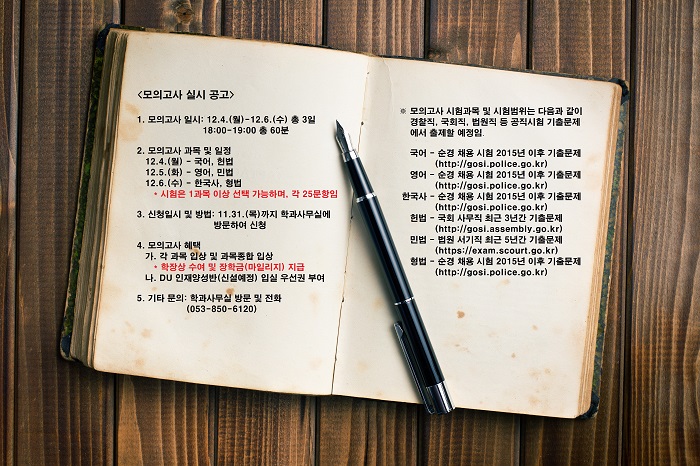 <모의고사 실시 공고>
1. 모의고사 일시: 12.4.(월)-12.6.(수) 총 3일
18:00-19:00 총 60분
2. 모의고사 과목 및 일정
12.4.(월) - 국어, 헌법
12.5.(화) - 영어, 민법
12.6.(수) - 한국사, 형법
* 시험은 1과목 이상 선택 가능하며, 각 25문항임
3. 신청일시 및 방법: 11.31.(목)까지 학과사무실에
방문하여 신청
4. 모의고사 혜택
가. 각 과목 입상 및 과목종합 입상
* 학장상 수여 및 장학금(마일리지) 지급
나. DU 인재양성반(신설예정) 입실 우선권 부여
5. 기타 문의: 학과사무실 방문 및 전화
(053-850-6120)
※ 모의고사 시험과목 및 시험범위는 다음과 같이
경찰직, 국회직, 법원직 등 공직시험 기출문제
에서 출제할 예정임.
국어 - 순경 채용 시험 2015년 이후 기출문제
(http://gosi.police.go.kr)
영어 - 순경 채용 시험 2015년 이후 기출문제
(http://gosi.police.go.kr)
한국사 - 순경 채용 시험 2015년 이후 기출문제
(http://gosi.police.go.kr)
헌법 - 국회 사무직 최근 3년간 기출문제
(http://gosi.assembly.go.kr)
민법 - 법원 서기직 최근 5년간 기출문제
(https://exam.scourt.go.kr)
형법 - 순경 채용 시험 2015년 이후 기출문제
(http://gosi.police.go.kr)